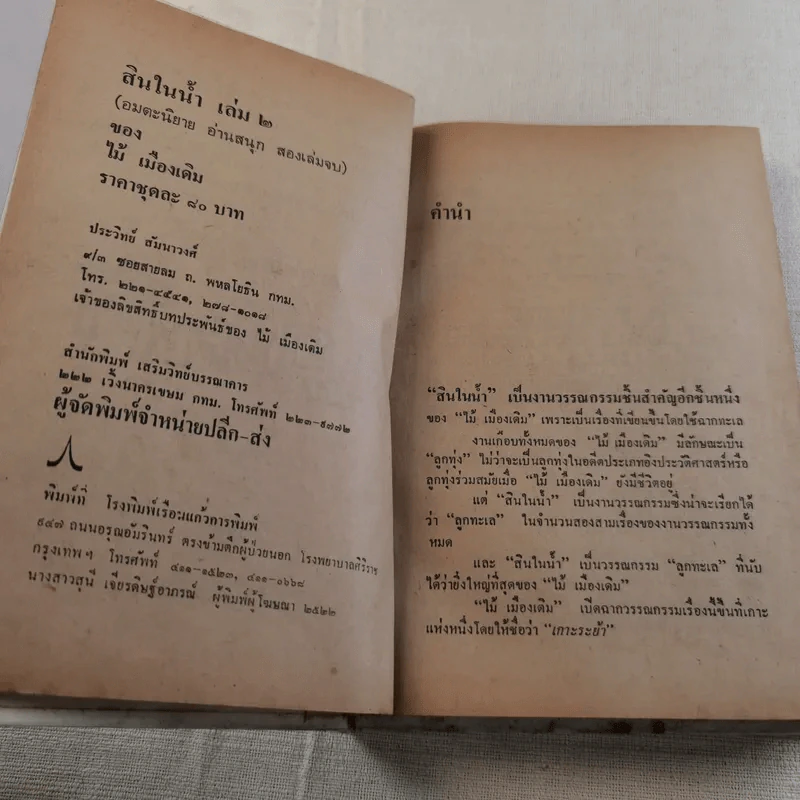 สินในน้ำ เล่ม ๒
(อมตะนิยาย อ่านสนุก สองเล่มจบ)
ของ
ไม้ เมืองเดิม
ราคาชุดละ ๘๐ บาท
ประวิทย์ สัมนาวงศ์
๙/๓ ซอยสายลม ถ. พหลโยธิน กทม.
โทร. ๒๒๑-๔๕๔๑, ๒๗๘-๑๐๑๘
เจ้าของลิขสิทธิ์บทประพันธ์ของ ไม้ เมืองเดิม
สำนักพิมพ์ เสริมวิทย์บรรณาคาร
๒๒๒ เวิ้งนาครเขษม กทม. โทรศัพท์ ๒๒๓-๙๗๗๒
ผู้จัดพิมพ์จำหน่ายปลีก-ส่ง
พิมพ์ที่ โรงพิมพ์เรือนแก้วการพิมพ์
๙๔๗ ถนนอรุณอัมรินทร์ ตรงข้ามตึกผู้ป่วยนอก โรงพยาบาลศิริราช
กรุงเทพฯ โทรศัพท์ ๔๑๑-๑๕๒๓, ๔๑๑-๐๖๖๘
นางสาวสุนี เจียรดิษฐ์อาภรณ์ ผู้พิมพ์ผู้โฆษณา ๒๕๒๒
คำนำ
“สินในน้ำ” เป็นงานวรรณกรรมชิ้นสำคัญอีกชิ้นหนึ่ง
ของ “ไม้ เมืองเดิม” เพราะเป็นเรื่องที่เขียนขึ้นโดยใช้ฉากทะเล
งานเกือบทั้งหมดของ “ไม้ เมืองเดิม” มีลักษณะเป็น
“ลูกทุ่ง” ไม่ว่าจะเป็นลูกทุ่งในอดีตประเภทอิงประวัติศาสตร์หรือ
ลูกทุ่งร่วมสมัยเมื่อ “ไม้ เมืองเดิม” ยังมีชีวิตอยู่
แต่ “สินในน้ำ” เป็นงานวรรณกรรมซึ่งน่าจะเรียกได้
ว่า “ลูกทะเล” ในจำนวนสองสามเรื่องของงานวรรณกรรมทั้ง
หมด
และ “สินในน้ำ” เป็นวรรณกรรม “ลูกทะเล” ที่นับ
ได้ว่ายิ่งใหญ่ที่สุดของ “ไม้ เมืองเดิม”
“ไม้ เมืองเดิม” เปิดฉากวรรณกรรมเรื่องนี้ขึ้นที่เกาะ
แห่งหนึ่งโดยให้ชื่อว่า “เกาะระย้า”